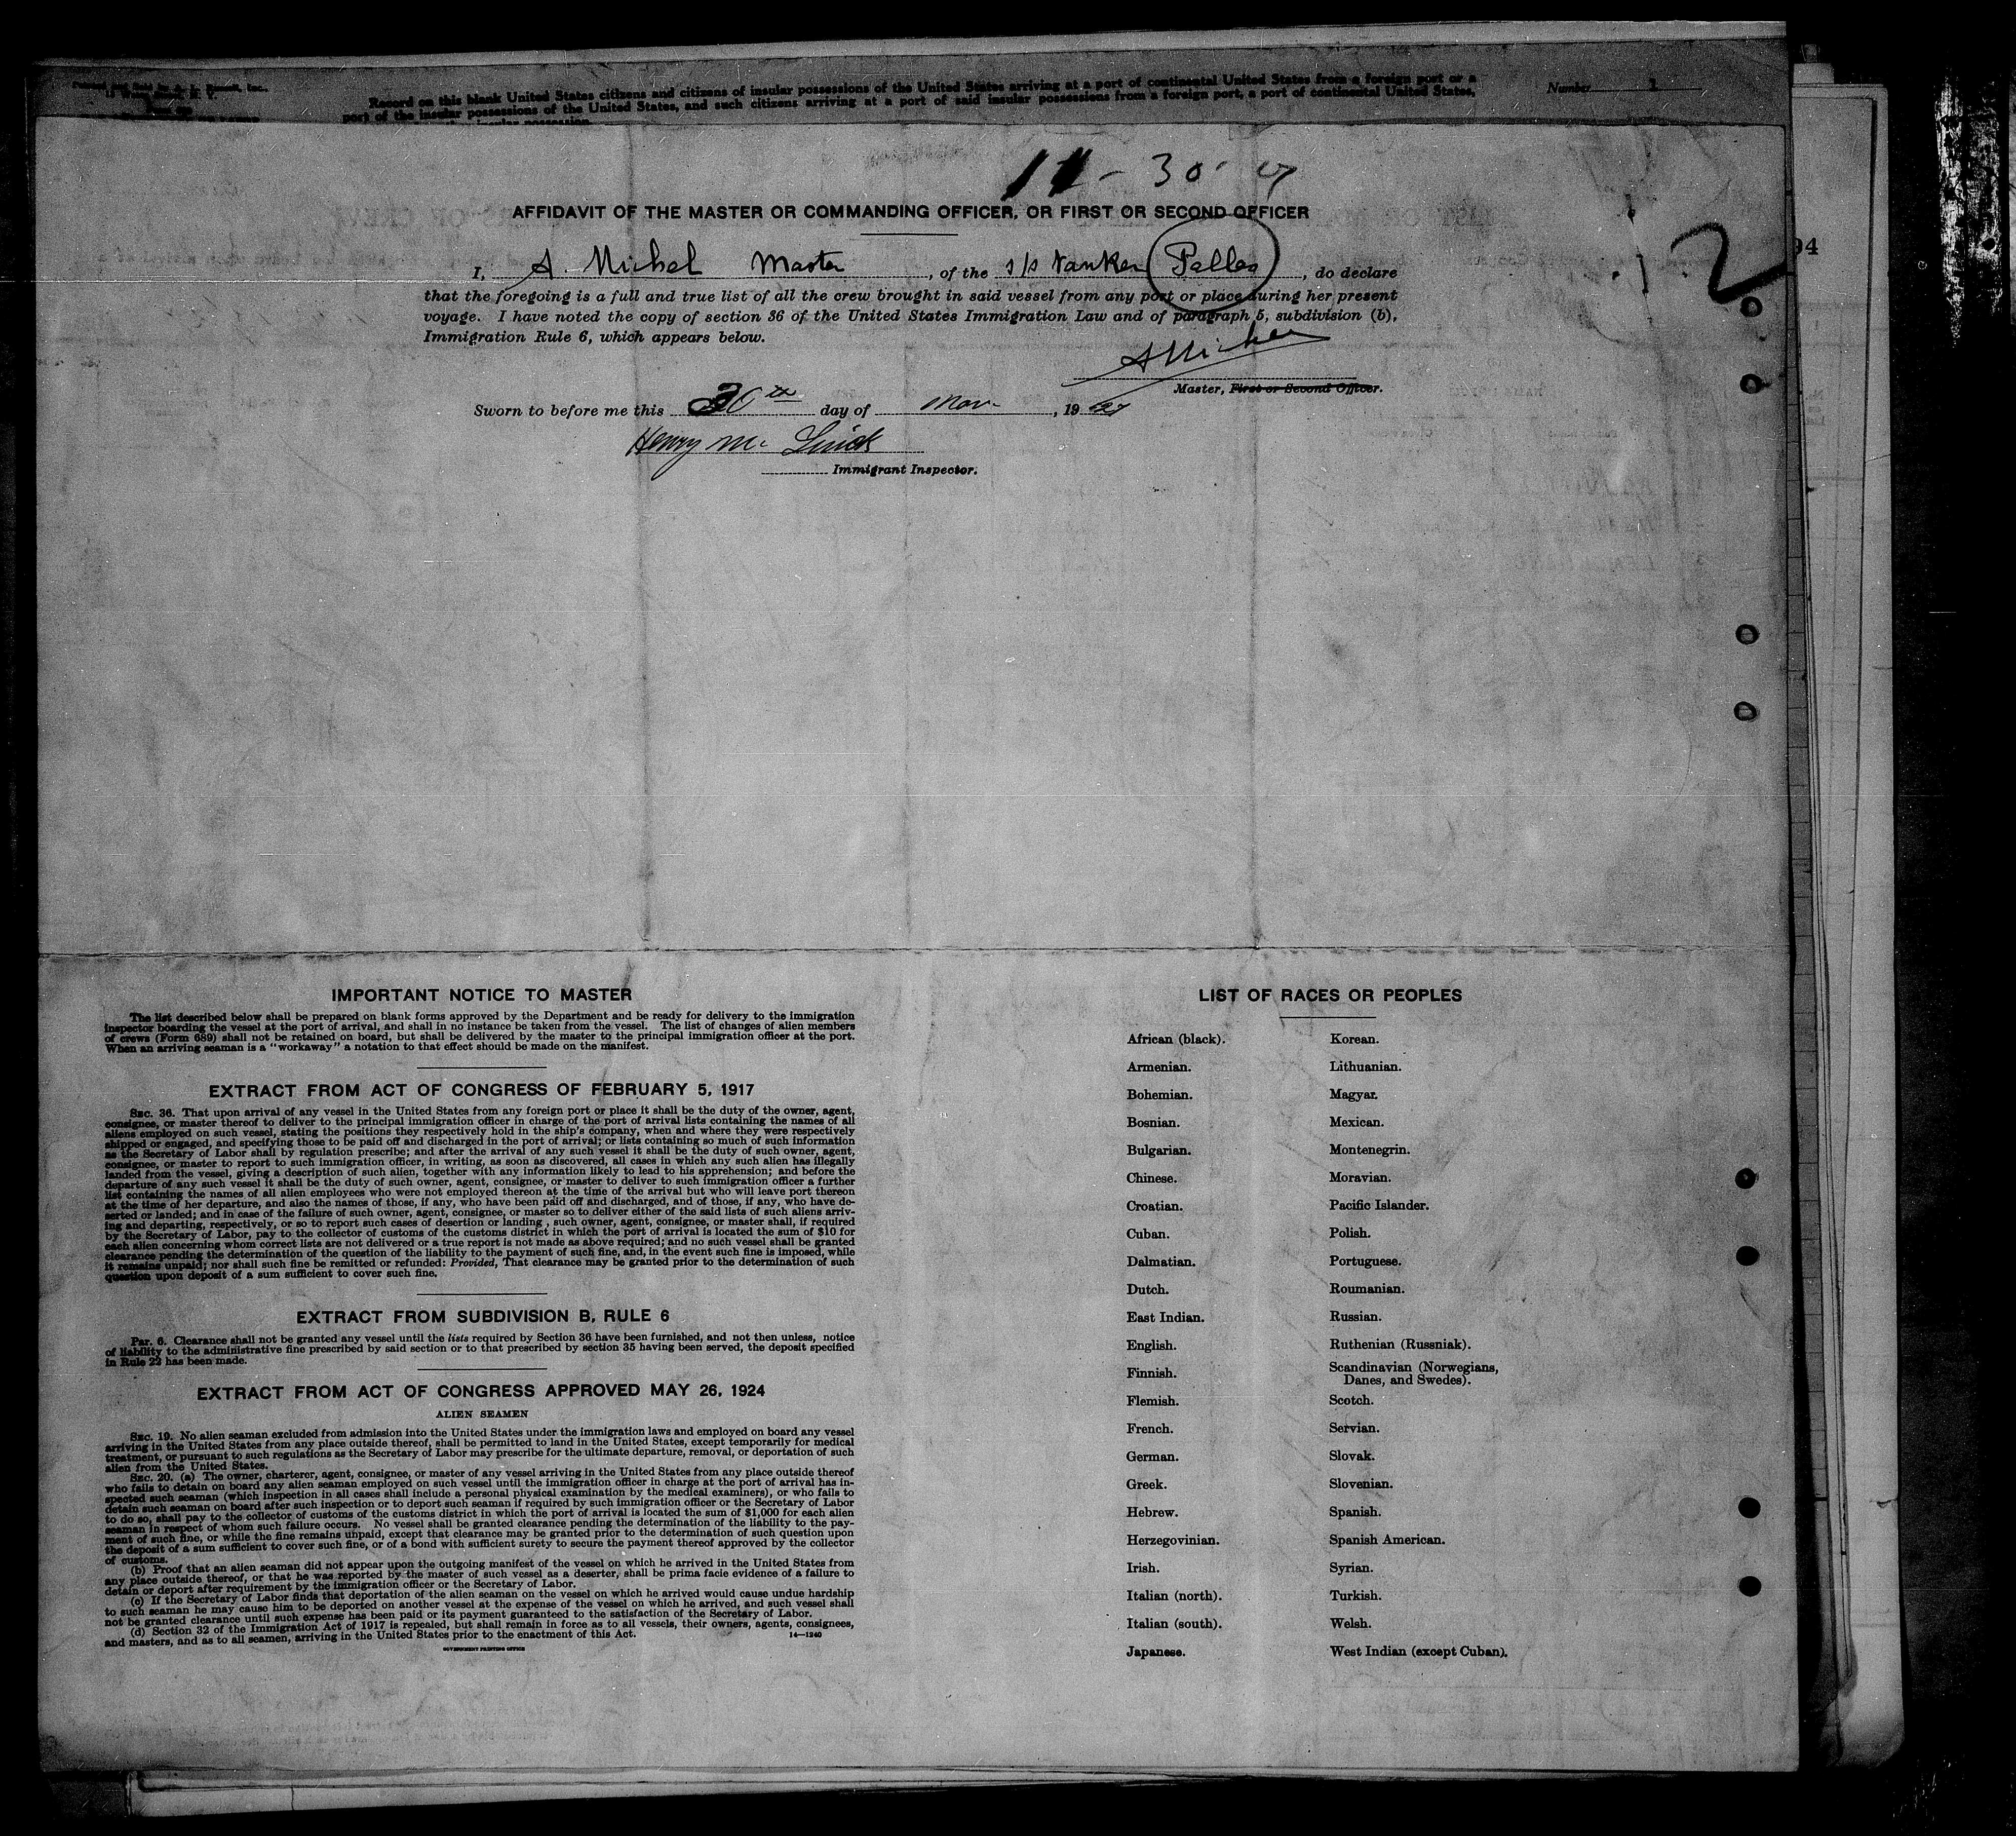 Record on this blank United States citizens and citizens of insular possessions of the United States arriving at a port of continental United States from a foreign port or a
port of the insular possessions of the United States, and such citizens arriving at a port of said insular possessions from a foreign port, a port of continental United States,
Number 1
11 - 30 - 27
AFFIDAVIT OF THE MASTER OR COMMANDING OFFICER, OR FIRST OR SECOND OFFICER
94
2
I, A. Michel Master, of the s/s tanker Pallas, do declare
that the foregoing is a full and true list of all the crew brought in said vessel from any port or place during her present
voyage. I have noted the copy of section 36 of the United States Immigration Law and of paragraph 5, subdivision (b),
Immigration Rule 6, which appears below.
A Michel
Master, First or Second Officer.
Sworn to before me this 30th day of Nov., 1927
Henry M.
Immigrant Inspector.
IMPORTANT NOTICE TO MASTER
The list described below shall be prepared on blank forms approved by the Department and be ready for delivery to the immigration
inspector boarding the vessel at the port of arrival, and shall in no instance be taken from the vessel. The list of changes of alien members
of crews (Form 689) shall not be retained on board, but shall be delivered by the master to the principal immigration officer at the port.
When an arriving seaman is a "workaway" a notation to that effect should be made on the manifest.
EXTRACT FROM ACT OF CONGRESS OF FEBRUARY 5, 1917
SEC. 36. That upon arrival of any vessel in the United States from any foreign port or place it shall be the duty of the owner, agent,
consignee, or master thereof to deliver to the principal immigration officer in charge of the port of arrival lists containing the names of all
aliens employed on such vessel, stating the positions they respectively hold in the ship's company, when and where they were respectively
shipped or engaged, and specifying those to be paid off and discharged in the port of arrival; or lists containing so much of such information
as the Secretary of Labor shall by regulation prescribe; and after the arrival of any such vessel it shall be the duty of such owner, agent,
consignee, or master to report to such immigration officer, in writing, as soon as discovered, all cases in which any such alien has illegally
landed from the vessel, giving a description of such alien, together with any information likely to lead to his apprehension; and before the
departure of any such vessel it shall be the duty of such owner, agent, consignee, or master to deliver to such immigration officer a further
list containing the names of all alien employees who were not employed thereon at the time of the arrival but who will leave port thereon
at the time of her departure, and also the names of those, if any, who have been paid off and discharged, and of those, if any, who have de-
serted or landed; and in case of the failure of such owner, agent, consignee, or master so to deliver either of the said lists of such aliens arriv-
ing and departing, respectively, or so to report such cases of desertion or landing , such owner, agent, consignee, or master shall, if required
by the Secretary of Labor, pay to the collector of customs of the customs district in which the port of arrival is located the sum of $10 for
each alien concerning whom correct lists are not delivered or a true report is not made as above required; and no such vessel shall be granted
clearance pending the determination of the question of the liability to the payment of such fine, and, in the event such fine is imposed, while
it remains unpaid; nor shall such fine be remitted or refunded: Provided, That clearance may be granted prior to the determination of such
question upon deposit of a sum sufficient to cover such fine.
EXTRACT FROM SUBDIVISION B, RULE 6
Par. 6. Clearance shall not be granted any vessel until the lists required by Section 36 have been furnished, and not then unless, notice
of liability to the administrative fine prescribed by said section or to that prescribed by section 35 having been served, the deposit specified
in Rule 22 has been made.
EXTRACT FROM ACT OF CONGRESS APPROVED MAY 26, 1924
ALIEN SEAMEN
SEC. 19. No alien seaman excluded from admission into the United States under the immigration laws and employed on board any vessel
arriving in the United States from any place outside thereof, shall be permitted to land in the United States, except temporarily for medical
treatment, or pursuant to such regulations as the Secretary of Labor may prescribe for the ultimate departure, removal, or deportation of such
alien from the United States.
SEC. 20. (a) The owner, charterer, agent, consignee, or master of any vessel arriving in the United States from any place outside thereof
who fails to detain on board any alien seaman employed on such vessel until the immigration officer in charge at the port of arrival has in-
spected such seaman (which inspection in all cases shall include a personal physical examination by the medical examiners), or who fails to
detain such seaman on board after such inspection or to deport such seaman if required by such immigration officer or the Secretary of Labor
to do so, shall pay to the collector of customs of the customs district in which the port of arrival is located the sum of $1,000 for each alien
seaman in respect of whom such failure occurs. No vessel shall be granted clearance pending the determination of the liability to the pay-
ment of such fine, or while the fine remains unpaid, except that clearance may be granted prior to the determination of such question upon
the deposit of a sum sufficient to cover such fine, or of a bond with sufficient surety to secure the payment thereof approved by the collector
of customs.
(b) Proof that an alien seaman did not appear upon the outgoing manifest of the vessel on which he arrived in the United States from
any place outside thereof, or that he was reported by the master of such vessel as a deserter, shall be prima facie evidence of a failure to
detain or deport after requirement by the immigration officer or the Secretary of Labor.
(c) If the Secretary of Labor finds that deportation of the alien seaman on the vessel on which he arrived would cause undue hardship
to such seaman he may cause him to be deported on another vessel at the expense of the vessel on which he arrived, and such vessel shall
not be granted clearance until such expense has been paid or its payment guaranteed to the satisfaction of the Secretary of Labor.
(d) Section 32 of the Immigration Act of 1917 is repealed, but shall remain in force as to all vessels, their owners, agents, consignees,
and masters, and as to all seamen, arriving in the United States prior to the enactment of this Act.
14—1240
GOVERNMENT PRINTING OFFICE
LIST OF RACES OR PEOPLES
African (black).
Armenian.
Bohemian.
Bosnian.
Bulgarian.
Chinese.
Croatian.
Cuban.
Dalmatian.
Dutch.
East Indian.
English.
Finnish.
Flemish.
French.
German.
Greek.
Hebrew.
Herzegovinian.
Irish.
Italian (north).
Italian (south).
Japanese.
Korean.
Lithuanian.
Magyar.
Mexican.
Montenegrin.
Moravian.
Pacific Islander.
Polish.
Portuguese.
Roumanian.
Russian.
Ruthenian (Russniak).
Scandinavian (Norwegians,
Danes, and Swedes).
Scotch.
Servian.
Slovak.
Slovenian.
Spanish.
Spanish American.
Syrian.
Turkish.
Welsh.
West Indian (except Cuban).